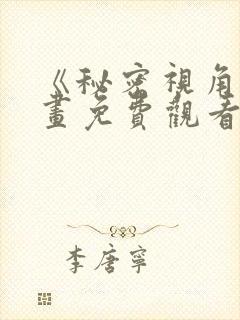 《秘密視角
畫免費觀看
李唐寧